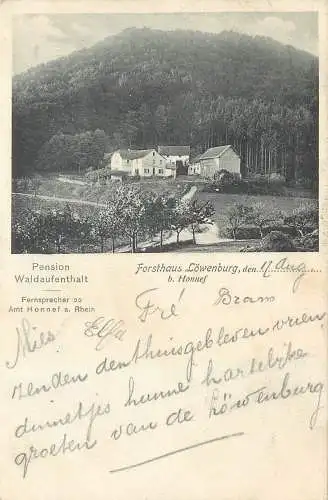 Pension
Waldaufenthalt
Fernsprecher 22
Amt Honnef a. Rhein
Forsthaus Löwenburg, den 17 Aug
b. Honnef
Mies Elfa Fré Bram
zenden den thuisgebleven vrien
dinnetjes hunne hartelijke
groeten van de Löwenburg